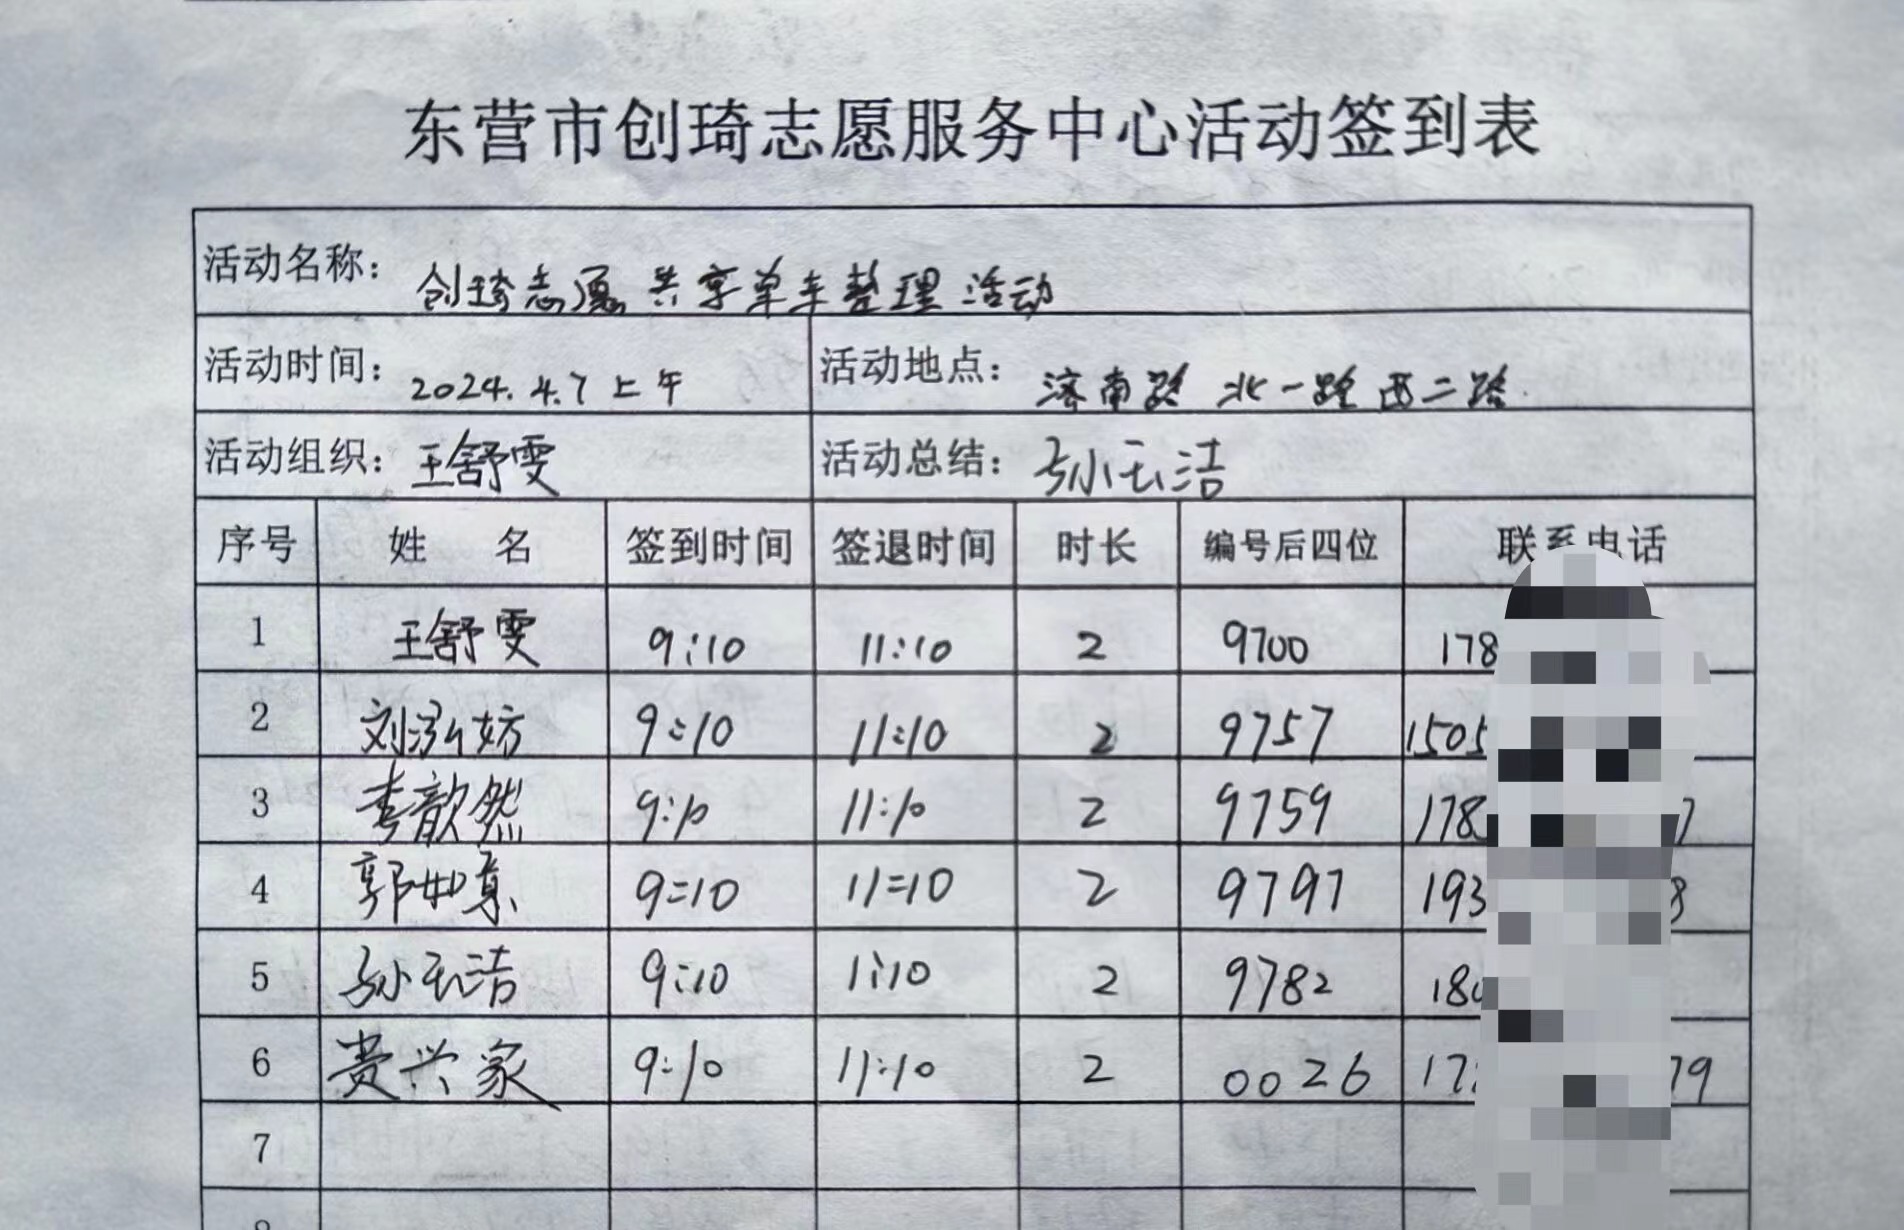 东营市创琦志愿服务中心活动签到表
活动名称: 创琦志愿共享单车整理活动
活动时间: 2024.4.7上午 活动地点: 济南路 北一路 西二路
活动组织: 王舒雯 活动总结: 孙玉洁
序号 姓 名 签到时间 签退时间 时长 编号后四位 联系电话
1 王舒雯 9:10 11:10 2 9700 178
2 刘泓妨 9:10 11:10 2 9757 1505
3 李歆然 9:10 11:10 2 9759 178 7
4 郭 9:10 11:10 2 9797 193 8
5 孙玉洁 9:10 1:10 2 9782 180
6 贵兴家 9:10 11:10 2 0026 17 79
7